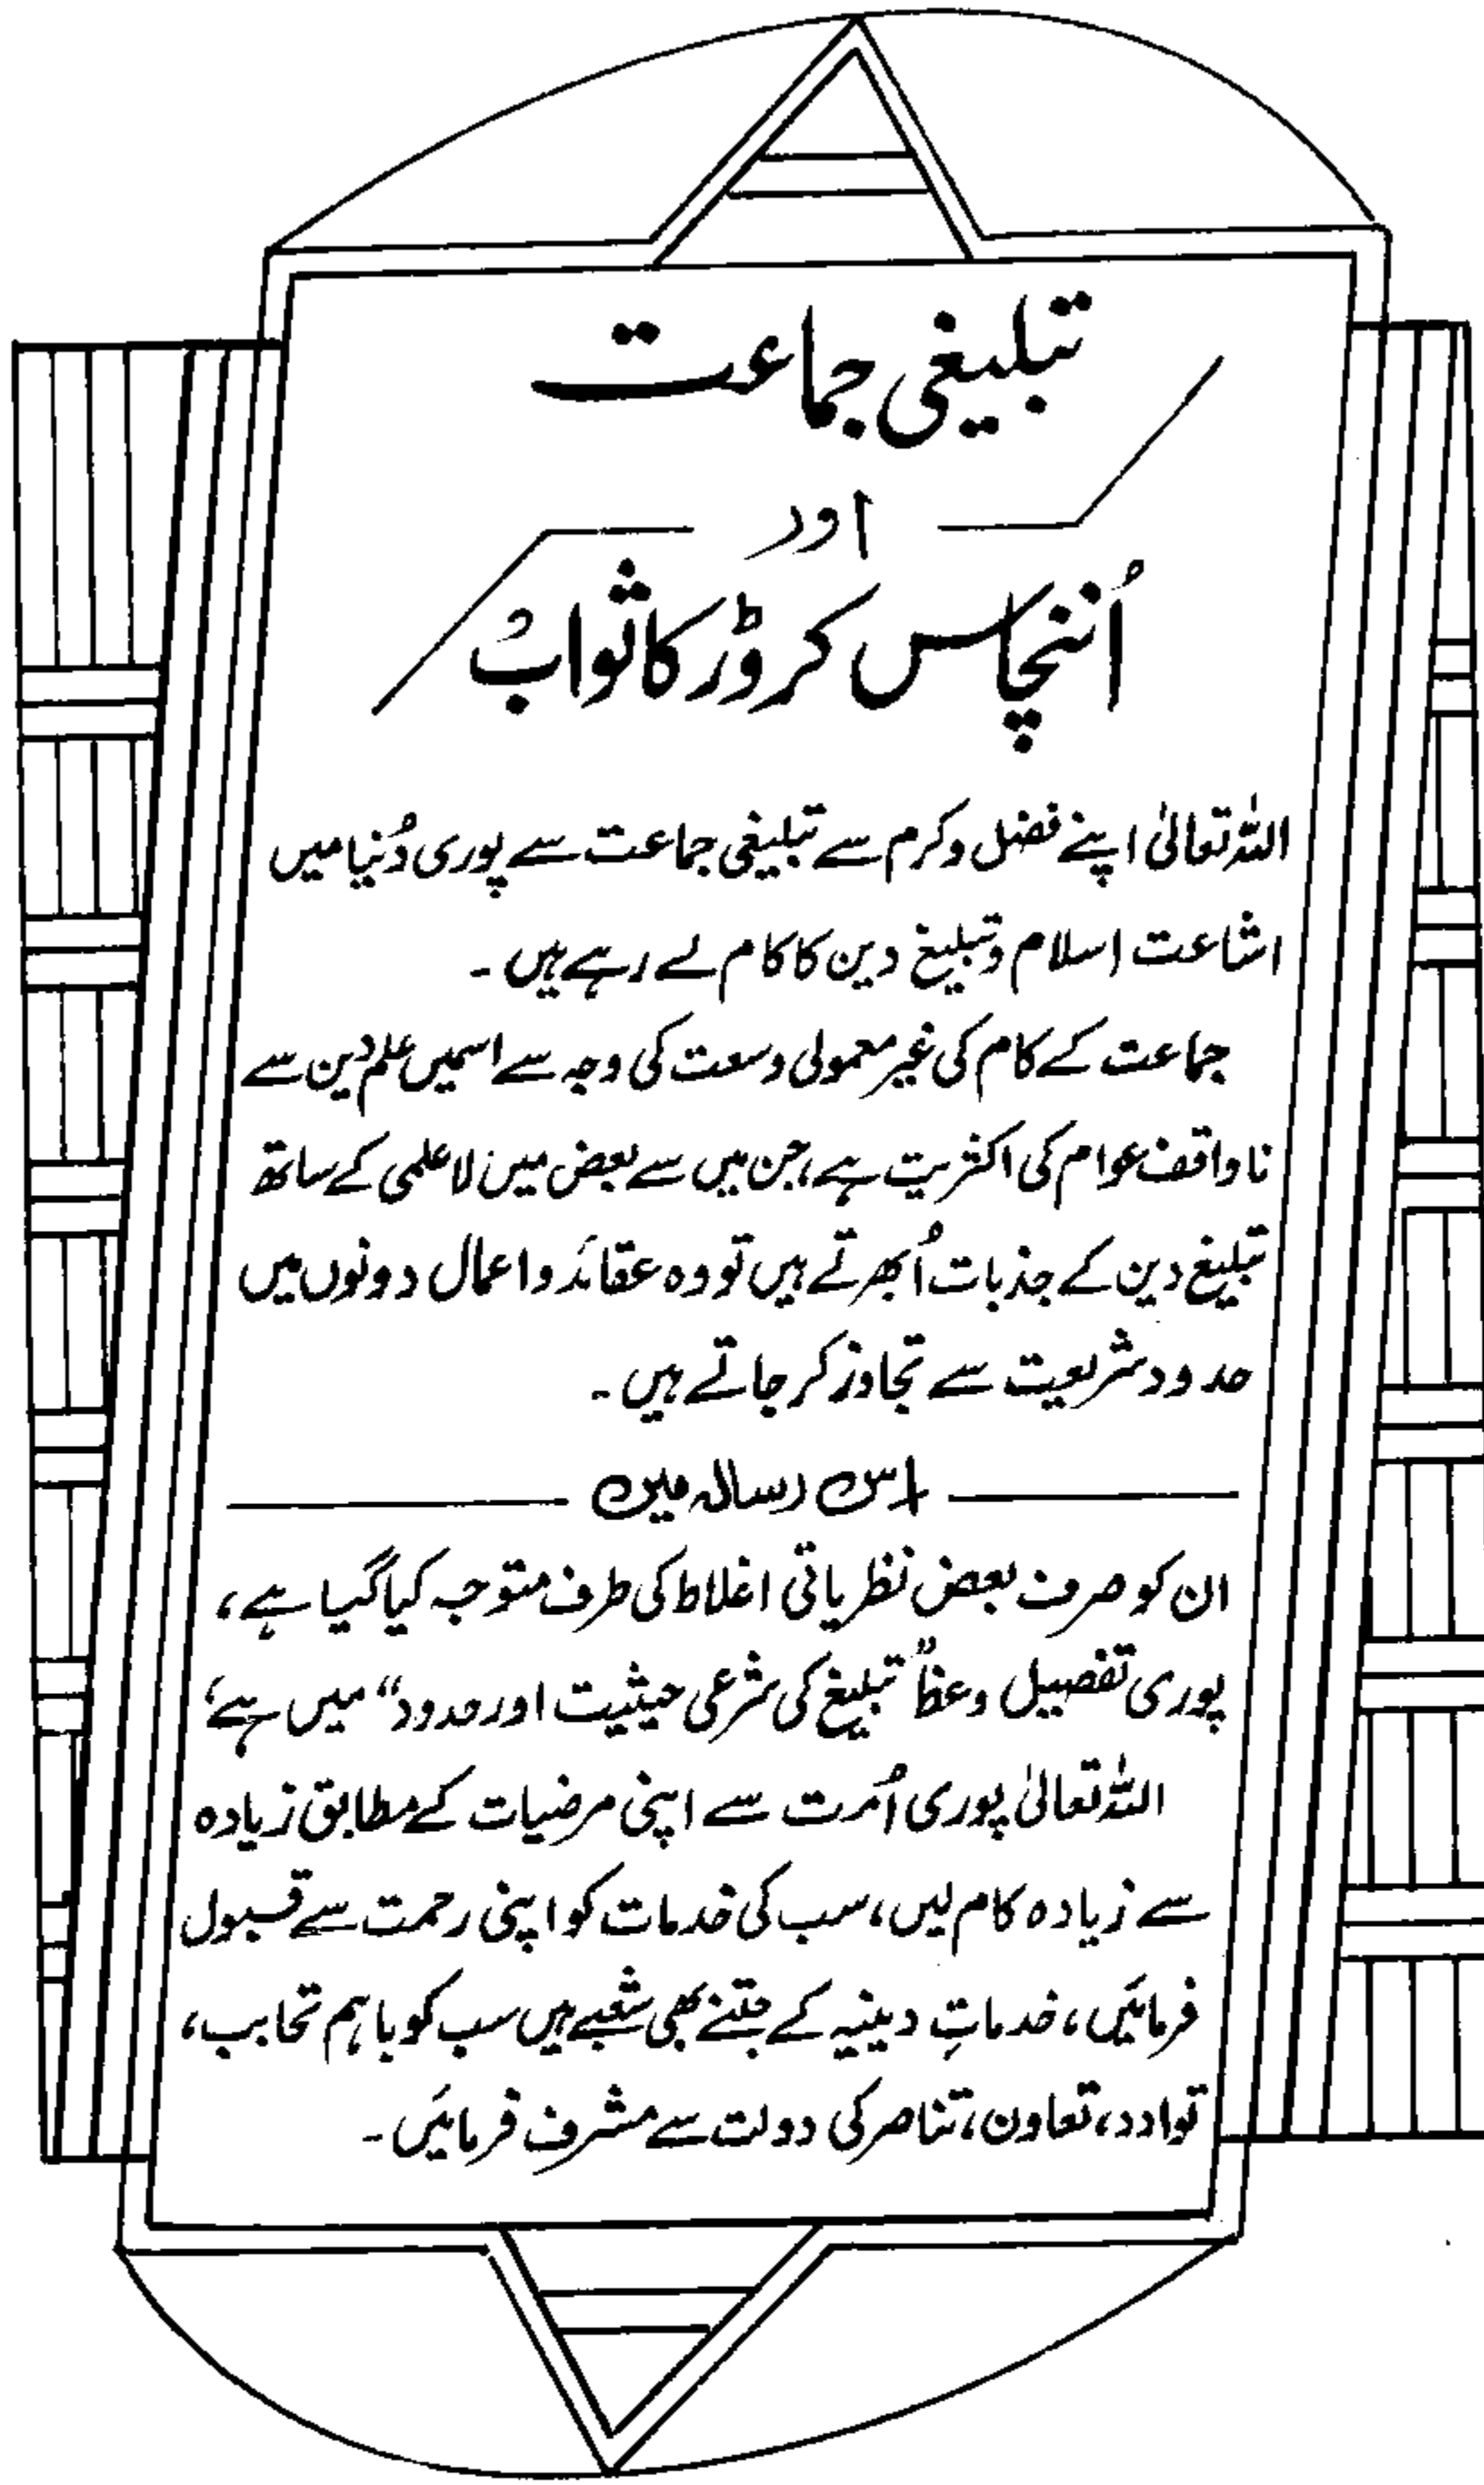 تبلیغی جماعت
اور
اُننچاس کروڑ کا ثواب
اللہ تعالیٰ اپنے فضل وکرم سے تبلیغی جماعت سے پوری دُنیا میں
اشاعت اسلام وتبلیغ دین کا کام لے رہے ہیں ۔
جماعت کے کام کی غیر معمولی وسعت کی وجہ سے اسمیں علم دین سے
ناواقف عوام کی اکثریت ہے، جن میں سے بعض میں لاعلمی کے ساتھ
تبلیغ دین کے جذبات اُبھرتے ہیں تو وہ عقائد و اعمال دونوں میں
حدود شریعت سے تجاوز کر جاتے ہیں ۔
اس رسالہ میں
ان کو صرف بعض نظریاتی اغلاط کی طرف متوجہ کیا گیا ہے ،
پوری تفصیل وعظ "تبلیغ کی شرعی حیثیت اور حدود" میں ہے ،
اللہ تعالیٰ پوری اُمت سے اپنی مرضیات کے مطابق زیادہ
سے زیادہ کام لیں ، سب کی خدمات کو اپنی رحمت سے قبول
فرمائیں ، خدماتِ دینیہ کے جتنے بھی شعبے ہیں سب کو باہم تحابب ،
توادد ، تعاون ، تناصر کی دولت سے مشرف فرمائیں ۔